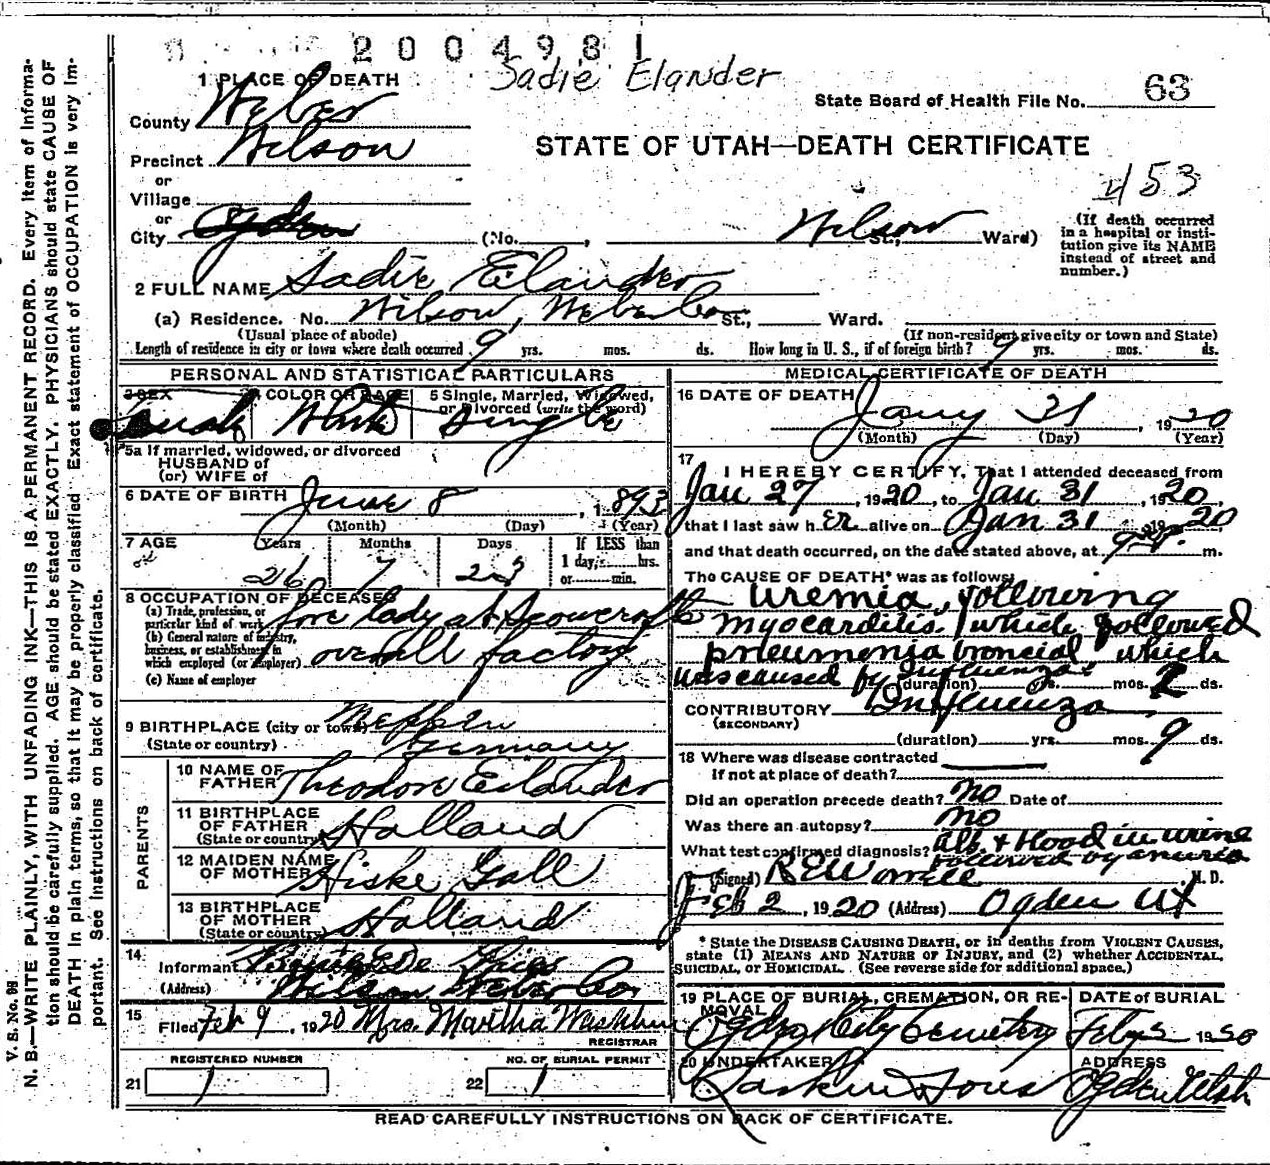 2004981
Sadie Elander
1 PLACE OF DEATH
State Board of Health File No. 63
County Weber
STATE OF UTAH—DEATH CERTIFICATE
Precinct Wilson
or
Village
453
or
City Ogden (No. , Wilson St., Ward)
(If death occurred in a hospital or insti-
tution give its NAME instead of street and number.)
2 FULL NAME Sadie Elander
(a) Residence. No. Wilson, Weber Co St., Ward.
(Usual place of abode) (If non-resident give city or town and State)
Length of residence in city or town where death occurred 9 yrs. mos. ds. How long in U. S., if of foreign birth? 9 yrs. mos. ds.
PERSONAL AND STATISTICAL PARTICULARS
3 SEX 4 COLOR OR RACE 5 Single, Married, Widowed, or Divorced (write the word)
White Single
5a If married, widowed, or divorced
HUSBAND of
(or) WIFE of
6 DATE OF BIRTH June 8, 1893
(Month) (Day) (Year)
7 AGE Years Months Days If LESS than
1 day, hrs.
or min.
26 7 23
8 OCCUPATION OF DECEASED
(a) Trade, profession, or particular kind of work fore lady at Scowcroft
(b) General nature of industry, business, or establishment in which employed (or employer) overall factory
(c) Name of employer
9 BIRTHPLACE (city or town) Meppen
(State or country) Germany
PARENTS
10 NAME OF FATHER Theodore Eilander
11 BIRTHPLACE OF FATHER Holland
(State or country)
12 MAIDEN NAME OF MOTHER Hiske Gall
13 BIRTHPLACE OF MOTHER Holland
(State or country)
14
Informant
(Address) Wilson Weber Co
15
Filed Feb 9, 1920 Mrs. Martha Washburn
REGISTRAR
REGISTERED NUMBER NO. OF BURIAL PERMIT
21 1 22 1
MEDICAL CERTIFICATE OF DEATH
16 DATE OF DEATH Jany 31, 1920
(Month) (Day) (Year)
17
I HEREBY CERTIFY, That I attended deceased from
Jan 27, 1920, to Jan 31, 1920,
that I last saw her alive on Jan 31 1920
and that death occurred, on the date stated above, at 9 P. m.
The CAUSE OF DEATH* was as follows:
uremia, following
myocarditis which followed
pneumonia broncial which
was caused by Influenza
(duration) yrs. mos. 2 ds.
CONTRIBUTORY Influenza
(SECONDARY)
(duration) yrs. mos. 9 ds.
18 Where was disease contracted
If not at place of death?
Did an operation precede death? No Date of
Was there an autopsy? No
What test confirmed diagnosis? alb. + blood in urine
followed by anuria
(Signed) M. D.
Feb 2, 1920 (Address) Ogden Ut
* State the DISEASE CAUSING DEATH, or in deaths from VIOLENT CAUSES,
state (1) MEANS AND NATURE OF INJURY, and (2) whether ACCIDENTAL,
SUICIDAL, OR HOMICIDAL. (See reverse side for additional space.)
19 PLACE OF BURIAL, CREMATION, OR RE-
MOVAL
Ogden City Cemetery
DATE OF BURIAL
Feby 2 1920
20 UNDERTAKER
Larkin & Sons
ADDRESS
Ogden Utah
READ CAREFULLY INSTRUCTIONS ON BACK OF CERTIFICATE.
V. S. No.
N. B.—WRITE PLAINLY, WITH UNFADING INK—THIS IS A PERMANENT RECORD. Every item of informa-
tion should be carefully supplied. AGE should be stated EXACTLY. PHYSICIANS should state CAUSE OF
DEATH in plain terms, so that it may be properly classified. Exact statement of OCCUPATION is very im-
portant. See instructions on back of certificate.